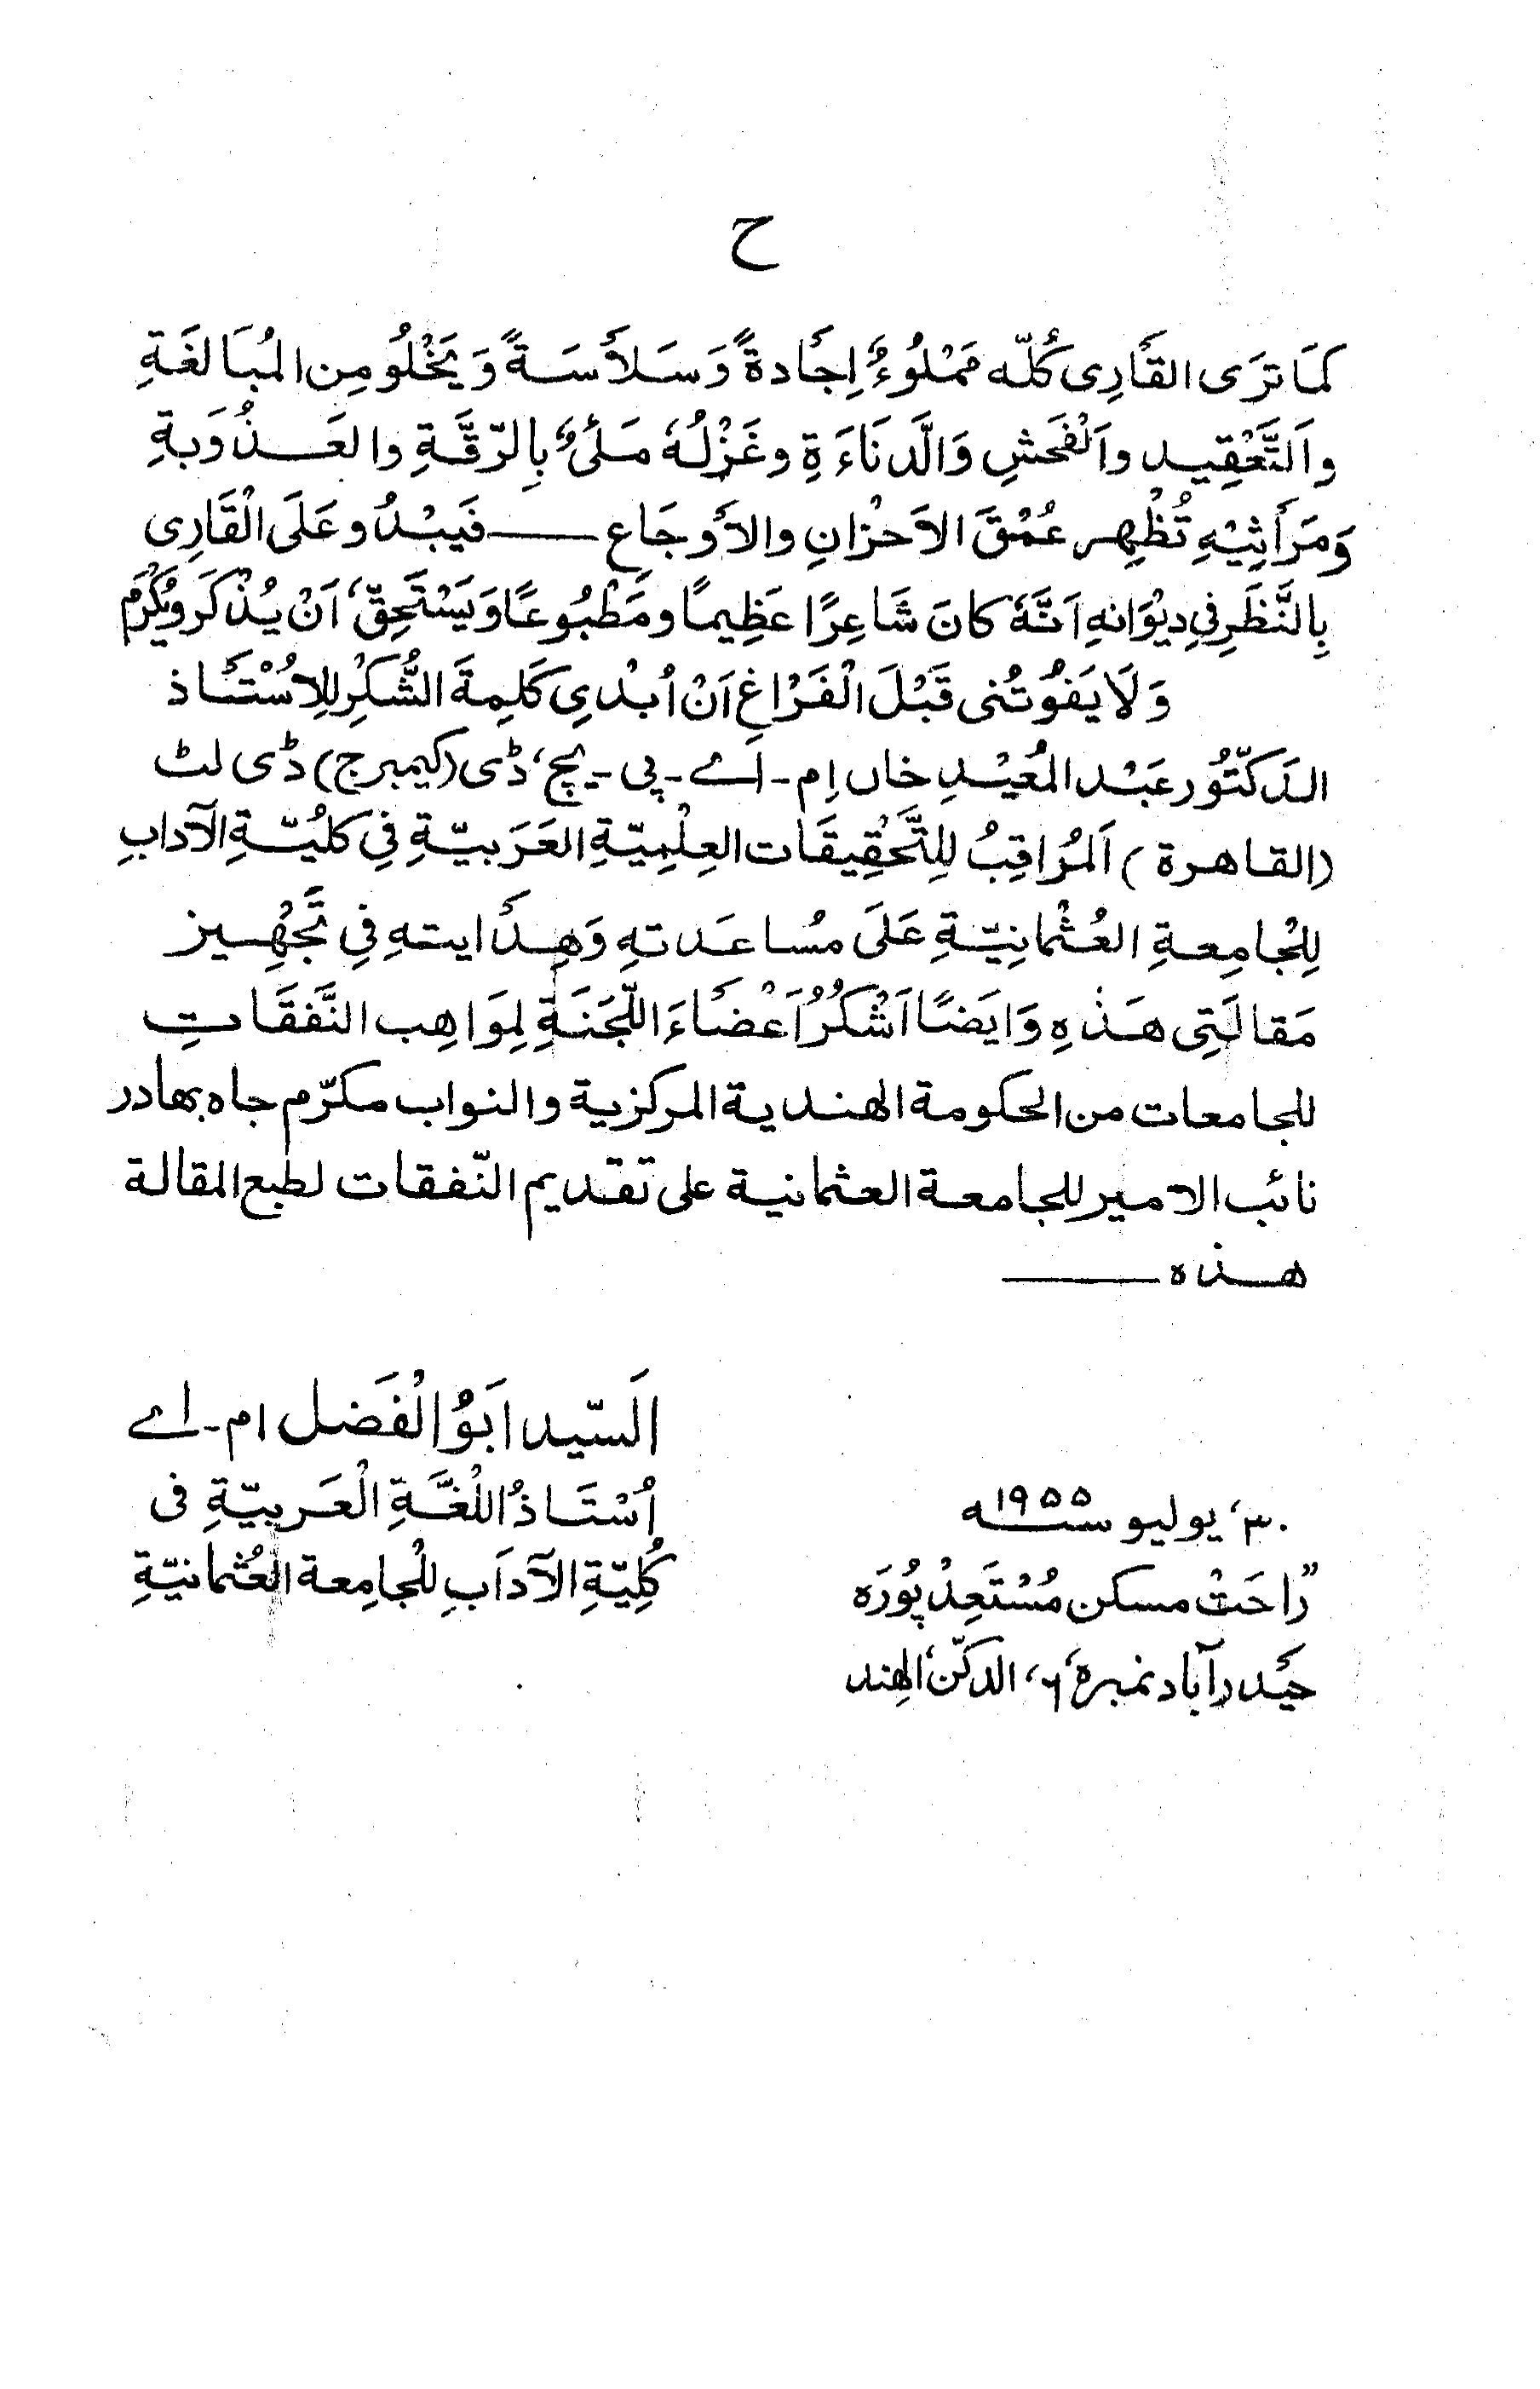 ح
كَمَا تَرَى القَارِى كُلّه مَمْلُوءُ اِجَادةً وَسَلاَسَةً وَيَخْلُو مِن المُبَالغَةِ
والتَّعْقِيد والْفَحَشِ وَالَّدنَاءَةِ وغَزْلُهٗ مَلْئٌ بِالرِّقَّةِ والعَذُوَبةِ
وَمَرَاثِيْهِ تُظْهِر عُمْقَ الاَحْزانِ والاَوجَاعِ ــــــ فَيَبْدُو عَلَى الْقَارِى
بِالنَّظَرِ فِي دِيْوَانهِ اَنَّهٗ كانَ شَاعِرًا عَظِيماً ومَطْبُوعًا وَيَسْتَحِقّ، اَنْ يُذْكَر ويُكْرَمْ
وَلَا يَفُوتُنى قَبْلَ الْفَرْاغِ اَنْ اُبْدِى كَلِمِةَ الشُّكْرِ لِلاسُتَاذ
الدَكّتُور عَبْد المُعَيْدِ خاں اِم - اے - پی - یچ، ڈی (کیمبرج) ڈی لٹ
(القاهرة) اَلمُرَاقِبُ لِلتَّحْقِيقَات العِلْمِيّةِ العَرَبيّةِ فِي كلُيّةِ الآدابِ
لِلْجامِعةِ العُثْمانِيّةِ عَلَى مسُاعَدتهِ وَهِدَايتهِ فِي تَجْهِيز
مَقالَتِى هَذٰهِ وَايَضًا اَشْكُرُ اَعْضَاءَ اللّجَنَةِ لِمَوَاهِب النَّفَقَاتِ
للجامعات من الحكومة الهندية المركزية والنواب مكرّم جاه بهادر
نائب الامير للجامعة العثمانية على تقديم النّفقات لطبع المقالة
هذه ــــــ
اَلسّيد ابَوُ الْفَضل ام-اے
اُسْتَاذُ اللْغَّةِ الْعَربيّةِ فى
كُلِيّةِ الآدَابِ للْجامِعة العُثمانيّةِ
۳۰، يوليو سنه ۱۹۵۵
"راحَتْ مسكن مُسْتَعِدْپُورَه
حَيْدرآباد نمبره، ۲، الدكن، الهند